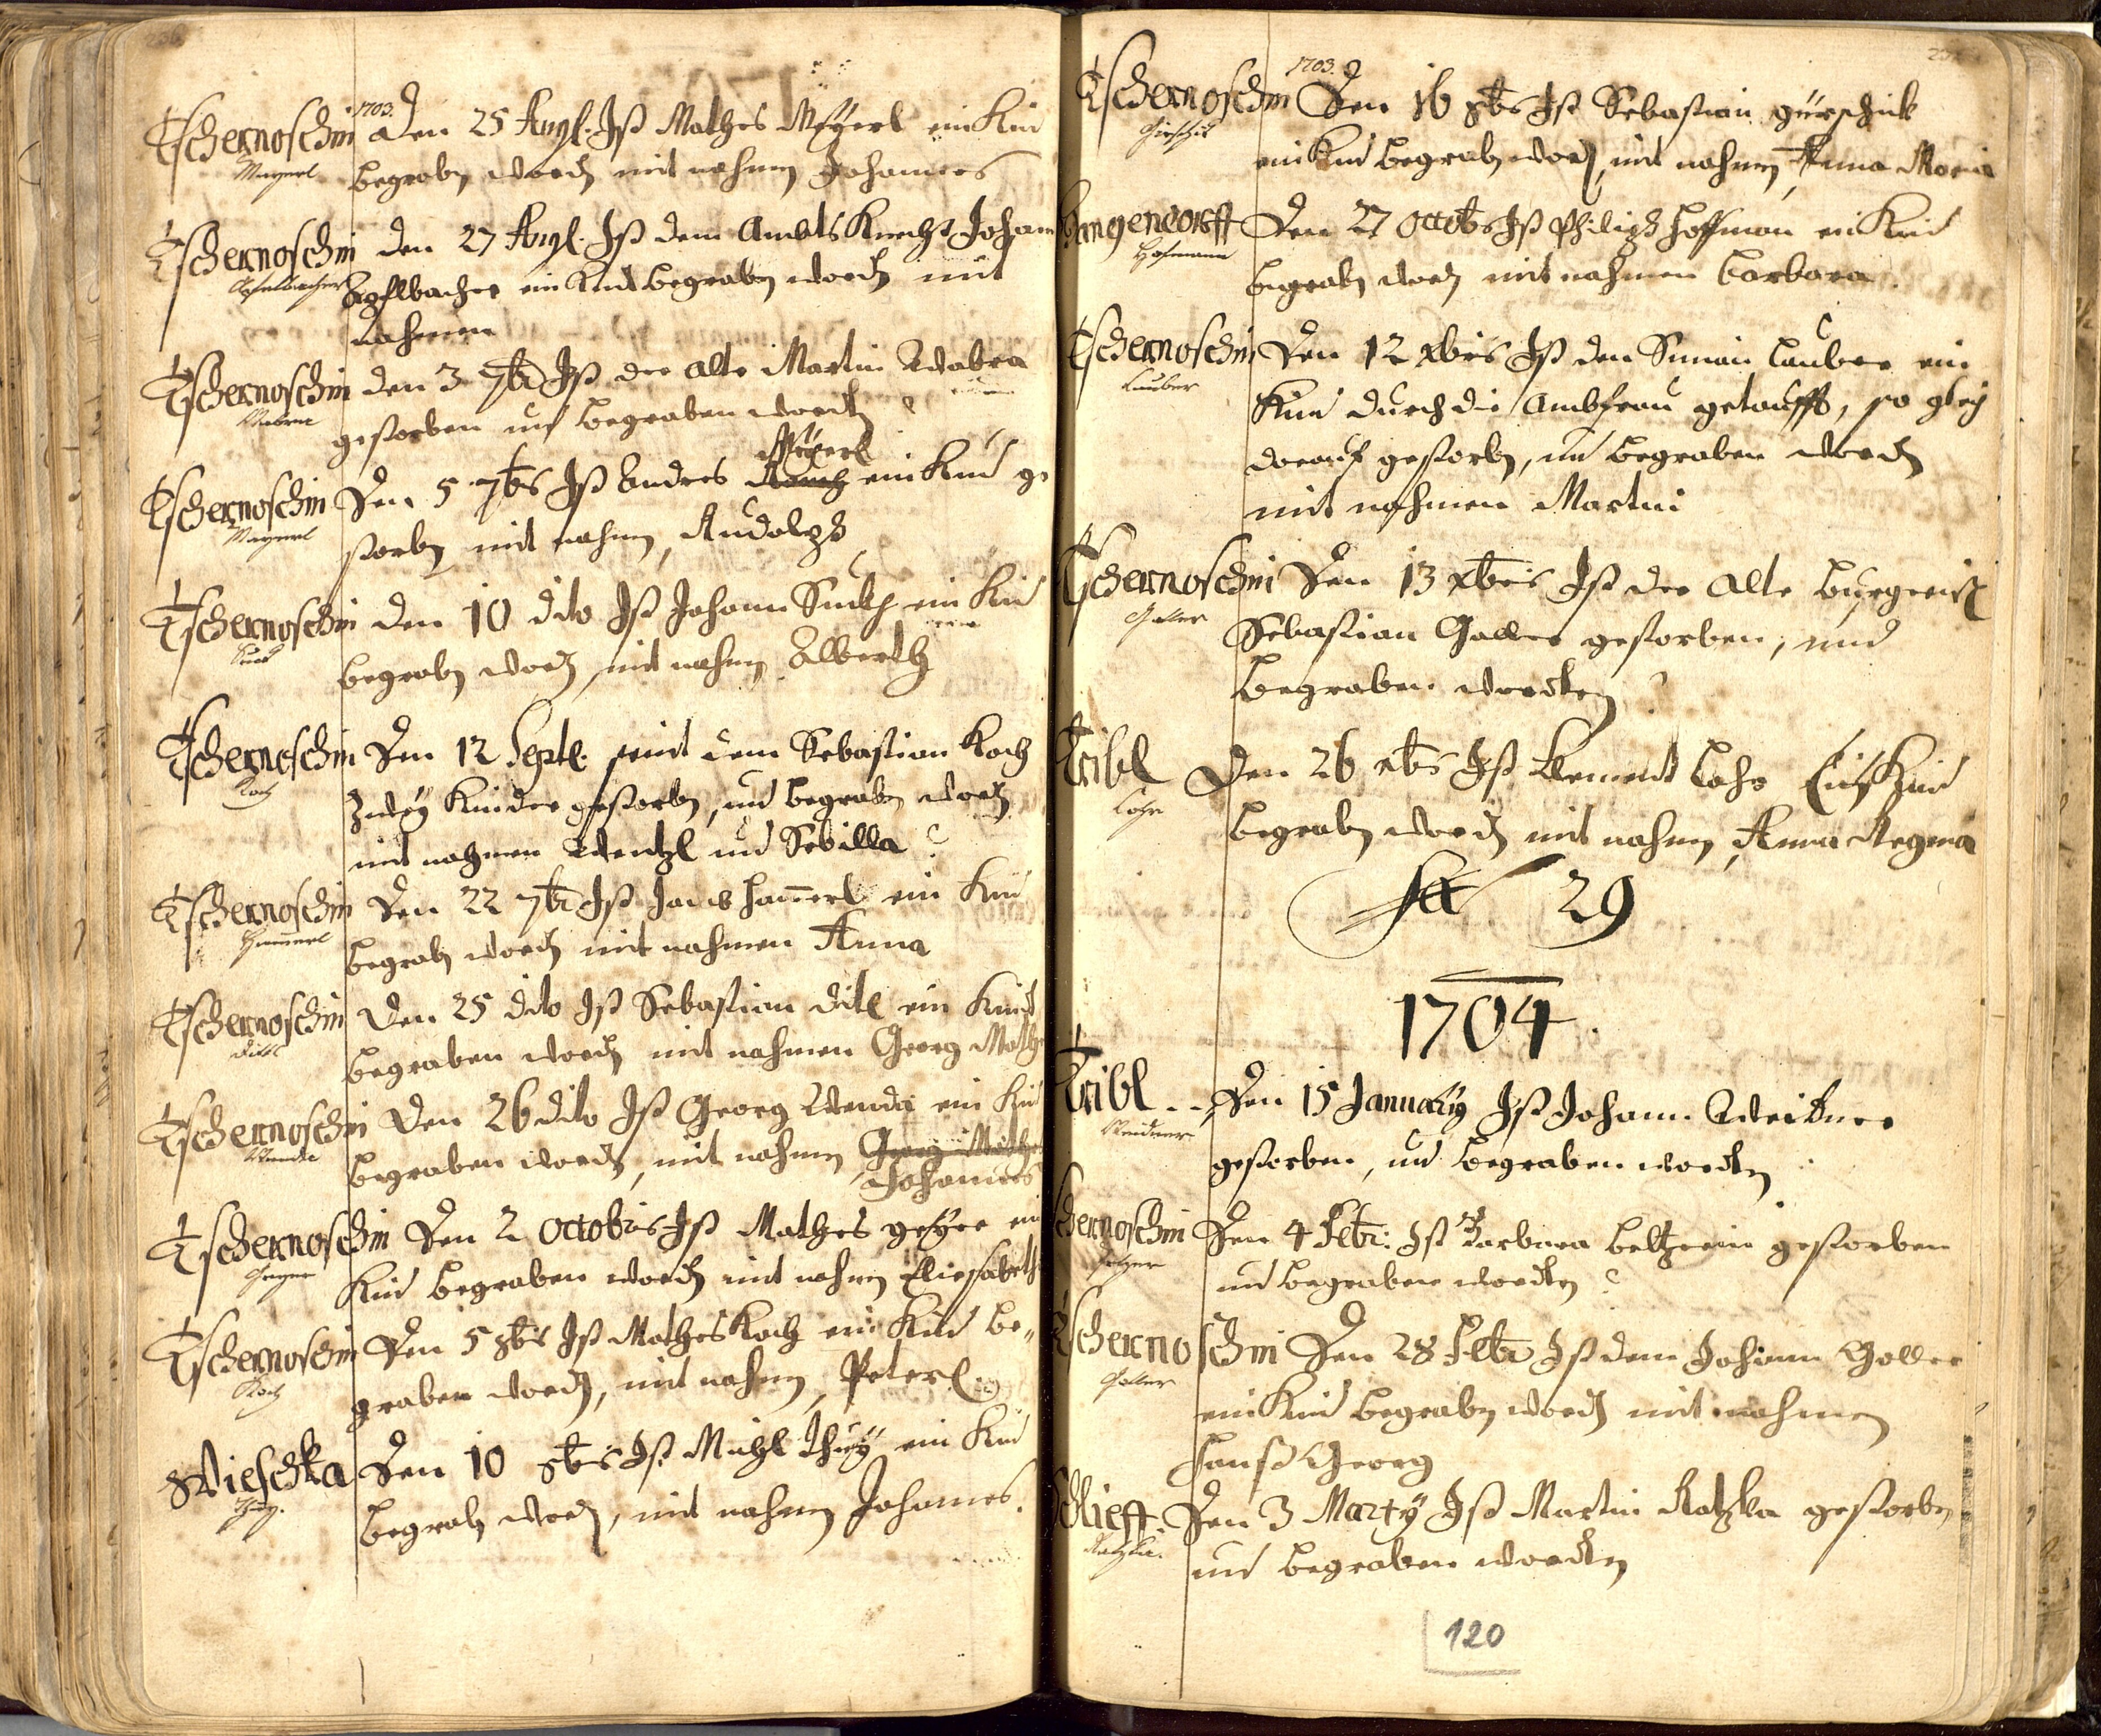 1703.
Tschernoschin Den 25 Augl. Ist Mathes Meÿerl ein Kind
Mayerl begraben worden mit nahmen Johannes
Tschernoschin den 27 Augl. Ist dem Ambts Knecht Johan
Apfelbacher Apflbacher ein Kind begraben worden mit
nahmen
Tschernoschin den 3 7br Ist der alte Martin Wabra
Wabra gestorben und begraben worden
Meÿerl
Tschernoschin Den 5 7bris Ist Endres ein Kind ge
Mayerl storben mit nahmen, Rudolph
Tschernoschin den 10 dito Ist Johann ein Kind
begraben worden mit nahmen Alberth
Tschernoschin Den 12 Septl. seind dem Sebastian Koch
Koch Zweÿ Kinder gestorben, und begraben worden
mit nahmen Wentzl und Sebilla
Tschernoschin Den 22 7br Ist Ham̄erl ein Kind
Ham̄erl begraben worden mit nahmen Anna
Tschernoschin Den 25 dito Ist Sebastian Ditl ein Kind
Dittl begraben worden mit nahmen Georg Mathe
Tschernoschin Den 26 dito Ist Georg Wenda ein Kind
begraben worden, mit nahmen Georg Mathe
Johannes
Tschernoschin Den 2 Octobris Ist Mathes geÿer ein
Geyer Kind begraben worden mit nahmen Eliesabeth
Tschernoschin Den 5 8bris Ist Mathes Koch ein Kind be„
Koch graben worden, mit nahmen, Peterl
Wieschka Den 10 8bris Ist Michl ein Kind
begraben worden, mit nahmen Johannes.
1703.
Tschernoschin Den 16 8bris Ist Sebastian gürschick
ein Kind begraben worden, mit nahmen, Anna Maria
Langendorff Den 27 Octobris Ist Philipp Hoffman ein Kind
Hofmann begraben worden mit nahmen Barbara.
Tschernoschin Den 12 xbris Ist den Simon Lauber ein
Lauber Kind durch die Ambfrau getaufft, so gleich
darauf gestorben, und begraben worden
mit nahmen Martin
Tschernoschin Den 13 xbris Ist der alte Burgermeister
Galler Sebastian Galler gestorben, und
begraben worden
Tribl Den 26 xbris Ist Clement Lohr Ein Kind
Lohr begraben worden mit nahmen, Anna Regina
29
1704.
Tribl Den 15 Januarÿ Ist Johann Weidner
Weidner gestorben, und begraben worden
Tschernoschin Den 4 Febr: Ist Barbara Beltzerin gestorben
und begraben worden
Tschernoschin Den 28 Febr Ist dem Johann Galler
Galler ein Kind begraben worden mit nahmen
Hanß Georg
Schlieff. Den 3 Martÿ Ist Martin Ratzka gestorben
Ratzka. und begraben worden
120